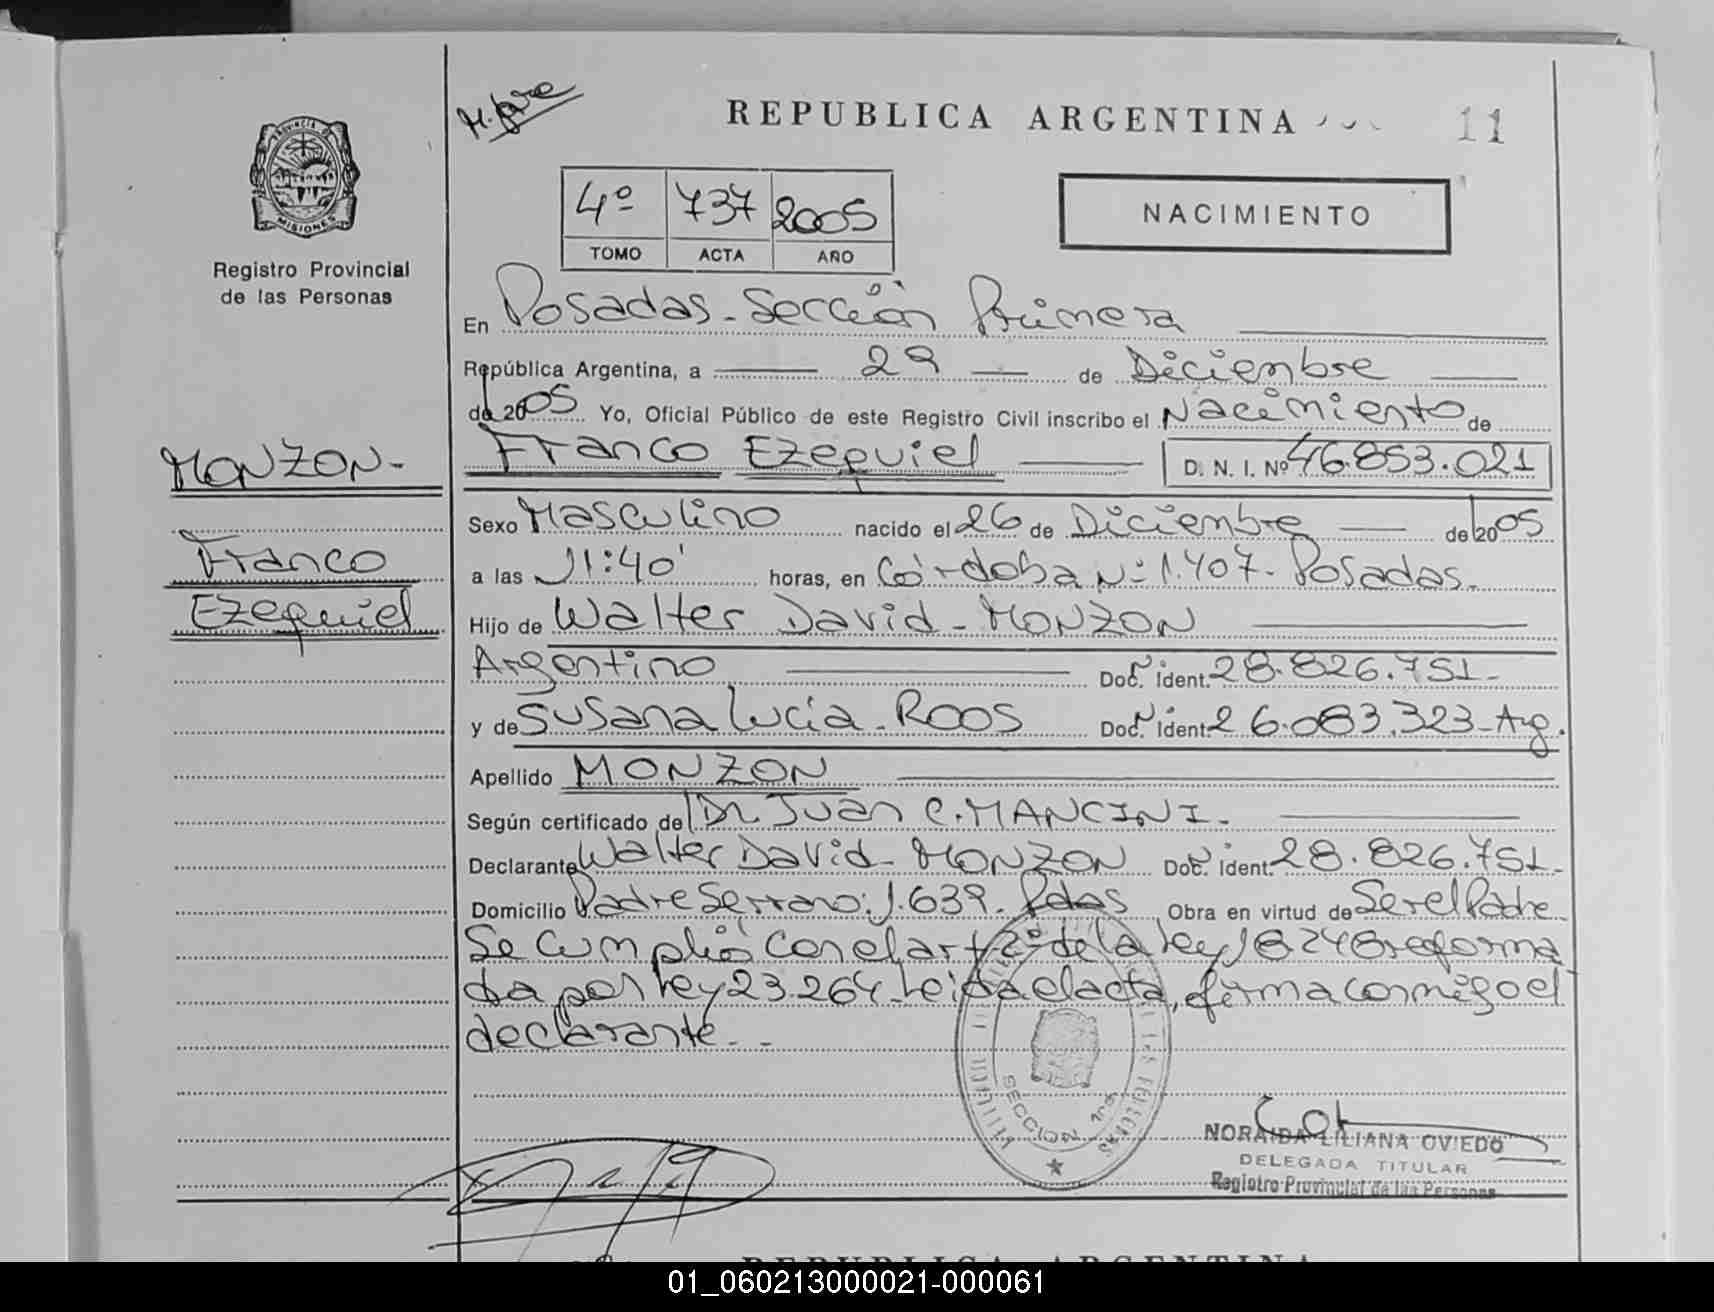 M. ave
REPUBLICA ARGENTINA
11
PROVINCIA DE
MISIONES
Registro Provincial
de las Personas
4º 737 2005
TOMO ACTA AÑO
NACIMIENTO
En Posadas - Sección Primera
República Argentina, a 29 de Diciembre
de 2005 Yo, Oficial Público de este Registro Civil inscribo el Nacimiento de
Franco Ezequiel D. N. I. Nº 46.853.021
MONZON-
Franco
Ezequiel
Sexo Masculino nacido el 26 de Diciembre de 2005
a las 11:40' horas, en Córdoba Nº 1.407- Posadas.
Hijo de Walter David - MONZON
Argentino Doc. Ident. 28.826.751-
y de Susana Lucia - ROOS Doc. Ident. 26.083.323-Arg.
Apellido MONZON
Según certificado de Dr. Juan C. MANCINI.
Declarante Walter David - MONZON Doc. Ident. 28.826.751-
Domicilio Padre Serrano: 1.639. Pdas Obra en virtud de Ser el Padre
Se cumplió con el art 2º de la ley 18248 reforma
da por ley 23.264 - Leida el acta, firma conmigo el
declarante - -
SECCION 1ra
NORAIDA LILIANA OVIEDO
DELEGADA TITULAR
Registro Provincial de las Personas
REPUBLICA ARGENTINA
01_060213000021-000061